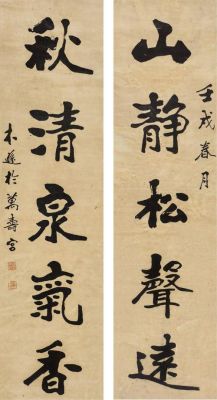 壬戌春月
山靜松聲遠
秋清泉氣香
於萬壽宮